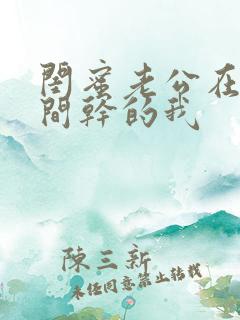 閨蜜老公在
間幹的我
陳三新
未經同意禁止轉載